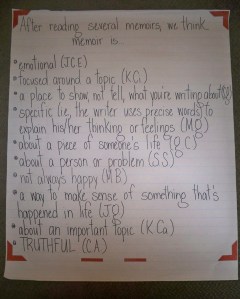 After reading several memoirs, we think
memoir is...
• emotional (JCE)
• focused around a topic (KCi)
• a place to show, not tell, what you're writing about
• specific lie, the writer uses precise words to
explain his/her thinking or feelings (MG)
• about a piece of someone's life (gC)
• about a person or problem (SS)
• not always happy (MB)
• a way to make sense of something that's
happened in life (JG)
• about an important topic (KCa)
• TRUTHFUL (CA)